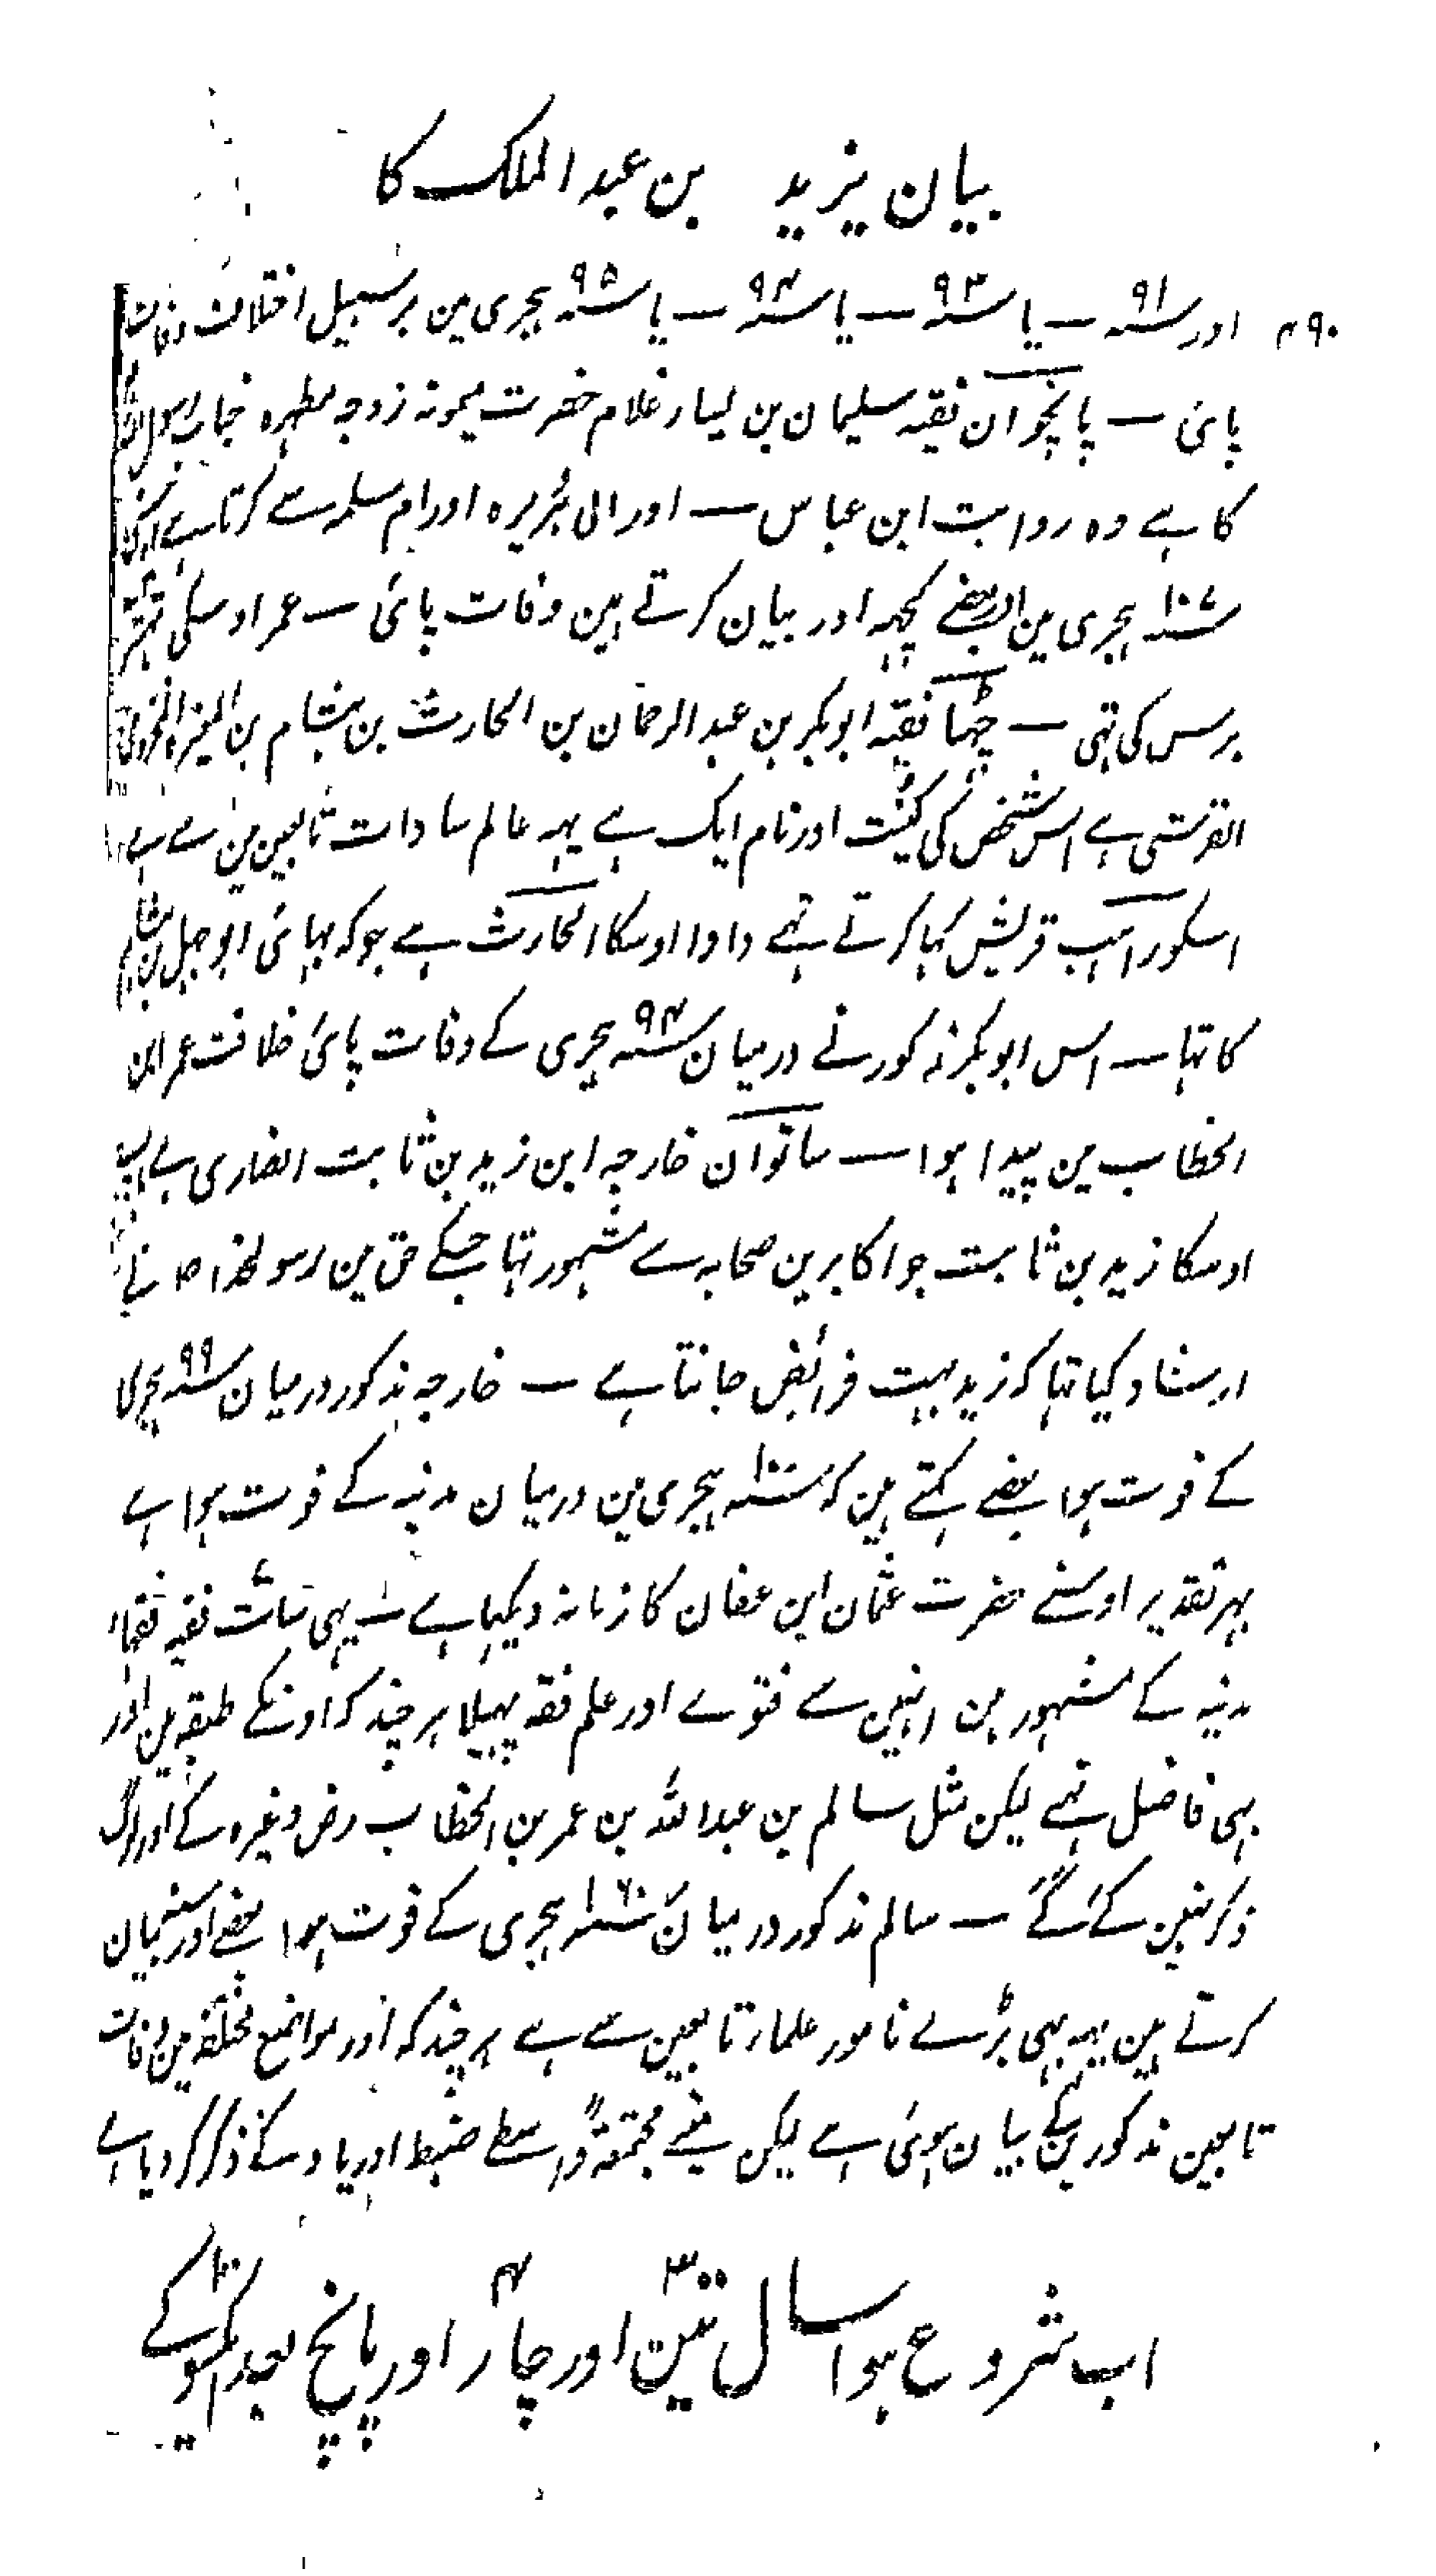 بیان یزید بن عبد الملک کا
۴۹۰ اور سنہ ۹۱ — یا سنہ ۹۳ — یا سنہ ۹۴ — یا سنہ ۹۵ ہجری مین برسبیل اختلاف وفات
پائی — پانچوان فقیہ سلیمان بن یسار غلام حضرت میمونہ زوجہ مطہرہ جناب رسول اللہ
کا ہے وہ روایت ابن عباس — اور ابی ہُریرہ اور ام سلمہ سے کرتا ہے
سنہ ۱۰۷ ہجری مین اور بعضے کچہہ اور بیان کرتے ہین وفات پائی — عمر اوسکی تہتر
برس کی تہی — چہٹا فقیہ ابو بکر بن عبد الرحمان بن الحارث بن ہشام بن المغیرہ المخزومی
القرشی ہے اس شخص کی کنیت اور نام ایک ہے یہہ عالم سادات تابعین مین سے ہے
اسکو راہب قریش کہا کرتے تہے دادا اوسکا الحارث ہے جو کہ بہائی ابو جہل بن ہشام
کا تہا — اس ابو بکر مذکور نے درمیان سنہ ۹۴ ہجری کے وفات پائی خلافت عمر ابن
الخطاب مین پیدا ہوا — ساتوان خارجہ ابن زید بن ثابت انصاری ہے باپ
اوسکا زید بن ثابت جو اکابرین صحابہ سے مشہور تہا جسکے حق مین رسولخدا ص نے
ارشاد کیا تہا کہ زید بہت فرائض جانتا ہے — خارجہ مذکور درمیان سنہ ۹۹ ہجری
کے فوت ہوا بعضے کہتے ہین کہ سنہ ۱۰۰ ہجری مین درمیان مدینہ کے فوت ہوا ہے
بہر تقدیر اوسنے حضرت عثمان ابن عفان کا زمانہ دیکہا ہے — یہی سات فقیہ فقہاء
مدینہ کے مشہور ہین انہین سے فتوے اور علم فقہ پہیلا ہر چند کہ اونکے طبقہ مین اور
بہی فاضل تہے لیکن مثل سالم بن عبد اللہ بن عمر بن الخطاب رض وغیرہ کے اور لوگ
ذکر نہین کئے گئے — سالم مذکور درمیان سنہ ۱۰۶ ہجری کے فوت ہوا بعضے اور سنہ بیان
کرتے ہین یہہ بہی بڑے نامور علماء تابعین سے ہے ہر چند کہ اور مواضع مختلفہ مین وفات
تابعین مذکورین کے بیان ہوئی ہے لیکن مینے مجتمعۃً واسطے ضبط اور یاد کے ذکر کر دیا ہے
اب شروع ہوا سال تین اور چار اور پانچ بعد یکسو کے